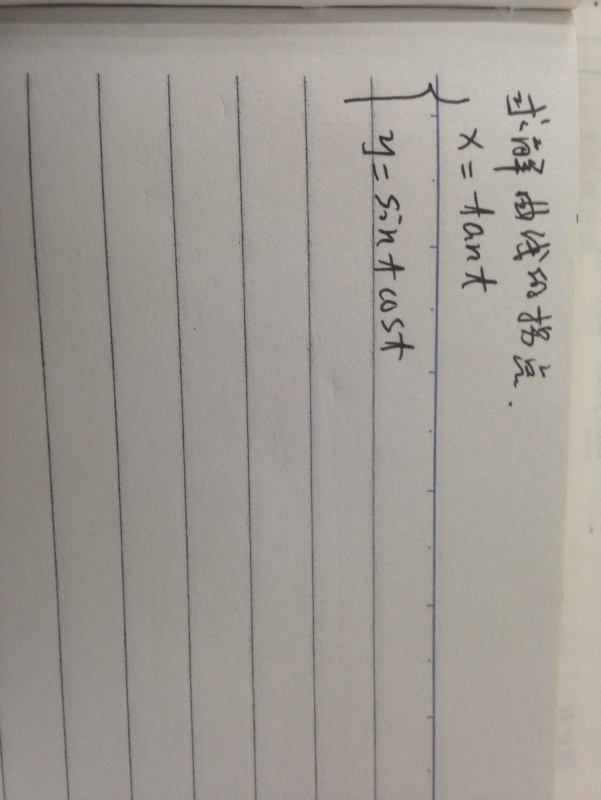 求解曲线的拐点.
x=tant
y=sintcost